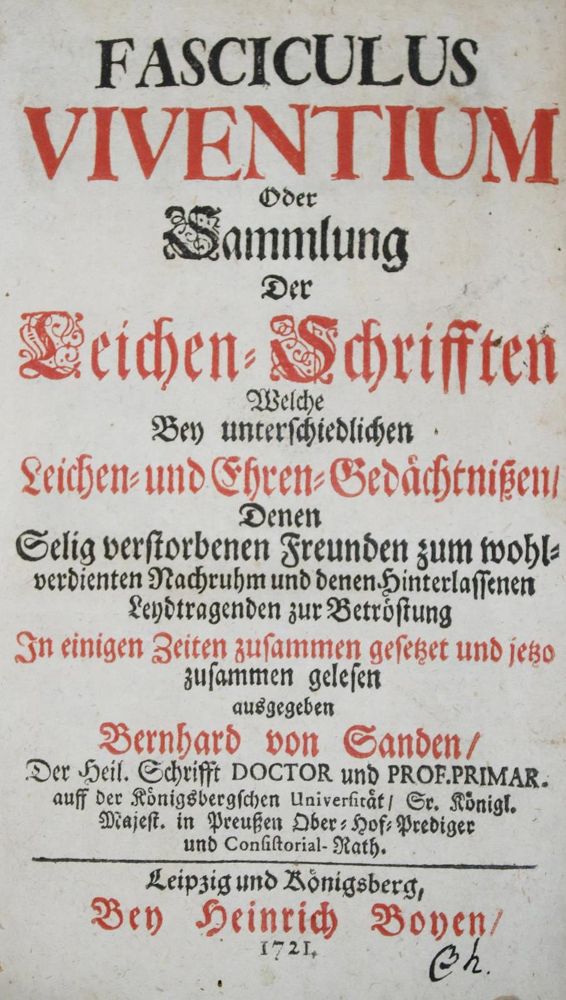 FASCICULUS
VIVENTIUM
Oder
Sammlung
Der
Leichen-Schrifften
Welche
Bey unterschiedlichen
Leichen- und Ehren-Gedächtnißen/
Denen
Selig verstorbenen Freunden zum wohl-
verdienten Nachruhm und denen Hinterlassenen
Leydtragenden zur Betröstung
In einigen Zeiten zusammen gesetzet und jetzo
zusammen gelesen
ausgegeben
Bernhard von Sanden/
Der Heil. Schrifft DOCTOR und PROF.PRIMAR.
auff der Königsbergschen Universität/ Sr. Königl.
Majest. in Preußen Ober-Hof-Prediger
und Consistorial-Rath.
Leipzig und Königsberg,
Bey Heinrich Boyen/
1721.